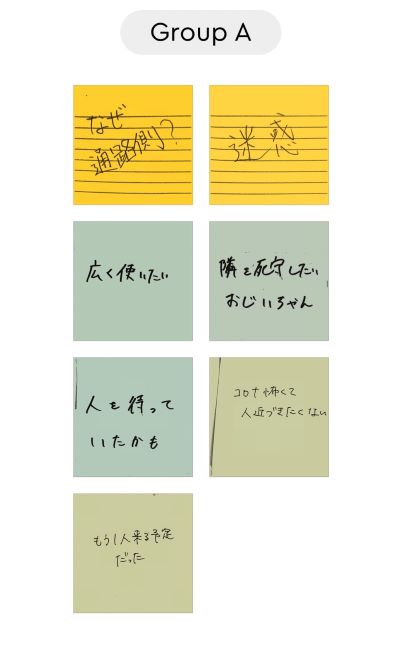 Group A
なぜ
通路側?
迷惑
広く使いたい
隣を死守したい
おじいちゃん
人を待って
いたかも
コロナ怖くて
人近づきたくない
もう1人来る予定
だった